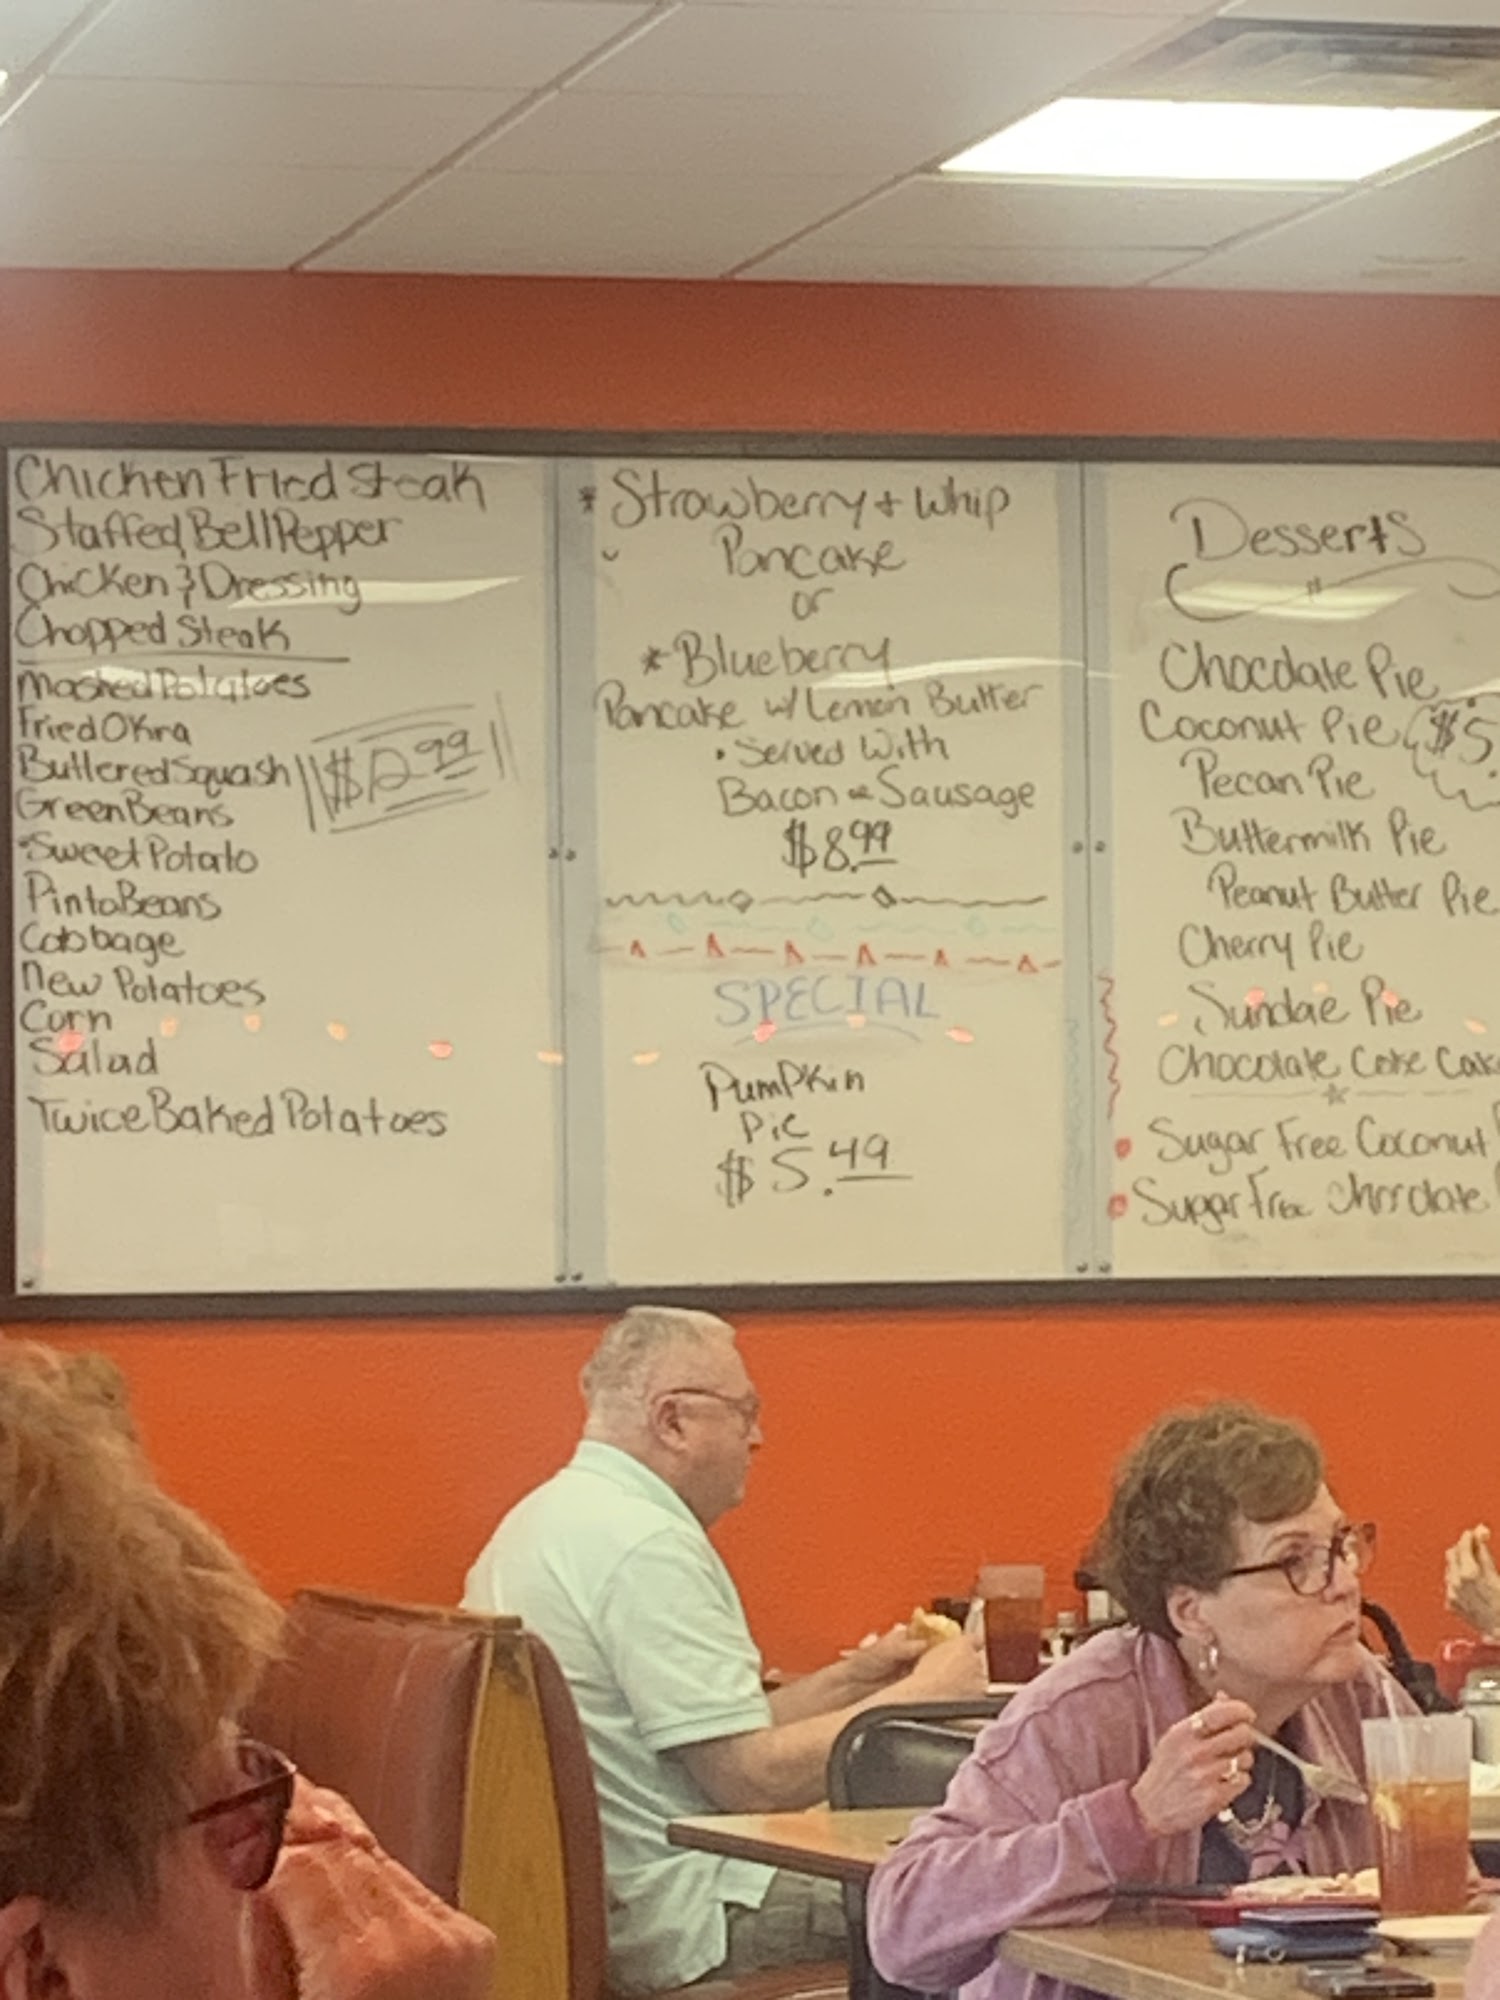 Chicken Fried Steak
Staffed Bell Pepper
Chicken & Dressing
Chopped Steak
Mashed Potatoes
Fried Okra
Buttered Squash
$12.99
Green Beans
Sweet Potato
Pinto Beans
Cabbage
New Potatoes
Corn
Salad
Twice Baked Potatoes
* Strawberry + Whip
Pancake
or
* Blueberry
Pancake w/ Lemon Butter
• Served With
Bacon or Sausage
$8.99
SPECIAL
PumPkin
Pie
$5.49
Desserts
Chocolate Pie
Coconut Pie
$5.
Pecan Pie
Buttermilk Pie
Peanut Butter Pie
Cherry Pie
Sundae Pie
Chocolate Coke Cake
• Sugar Free Coconut
• Sugar Free Chocolate